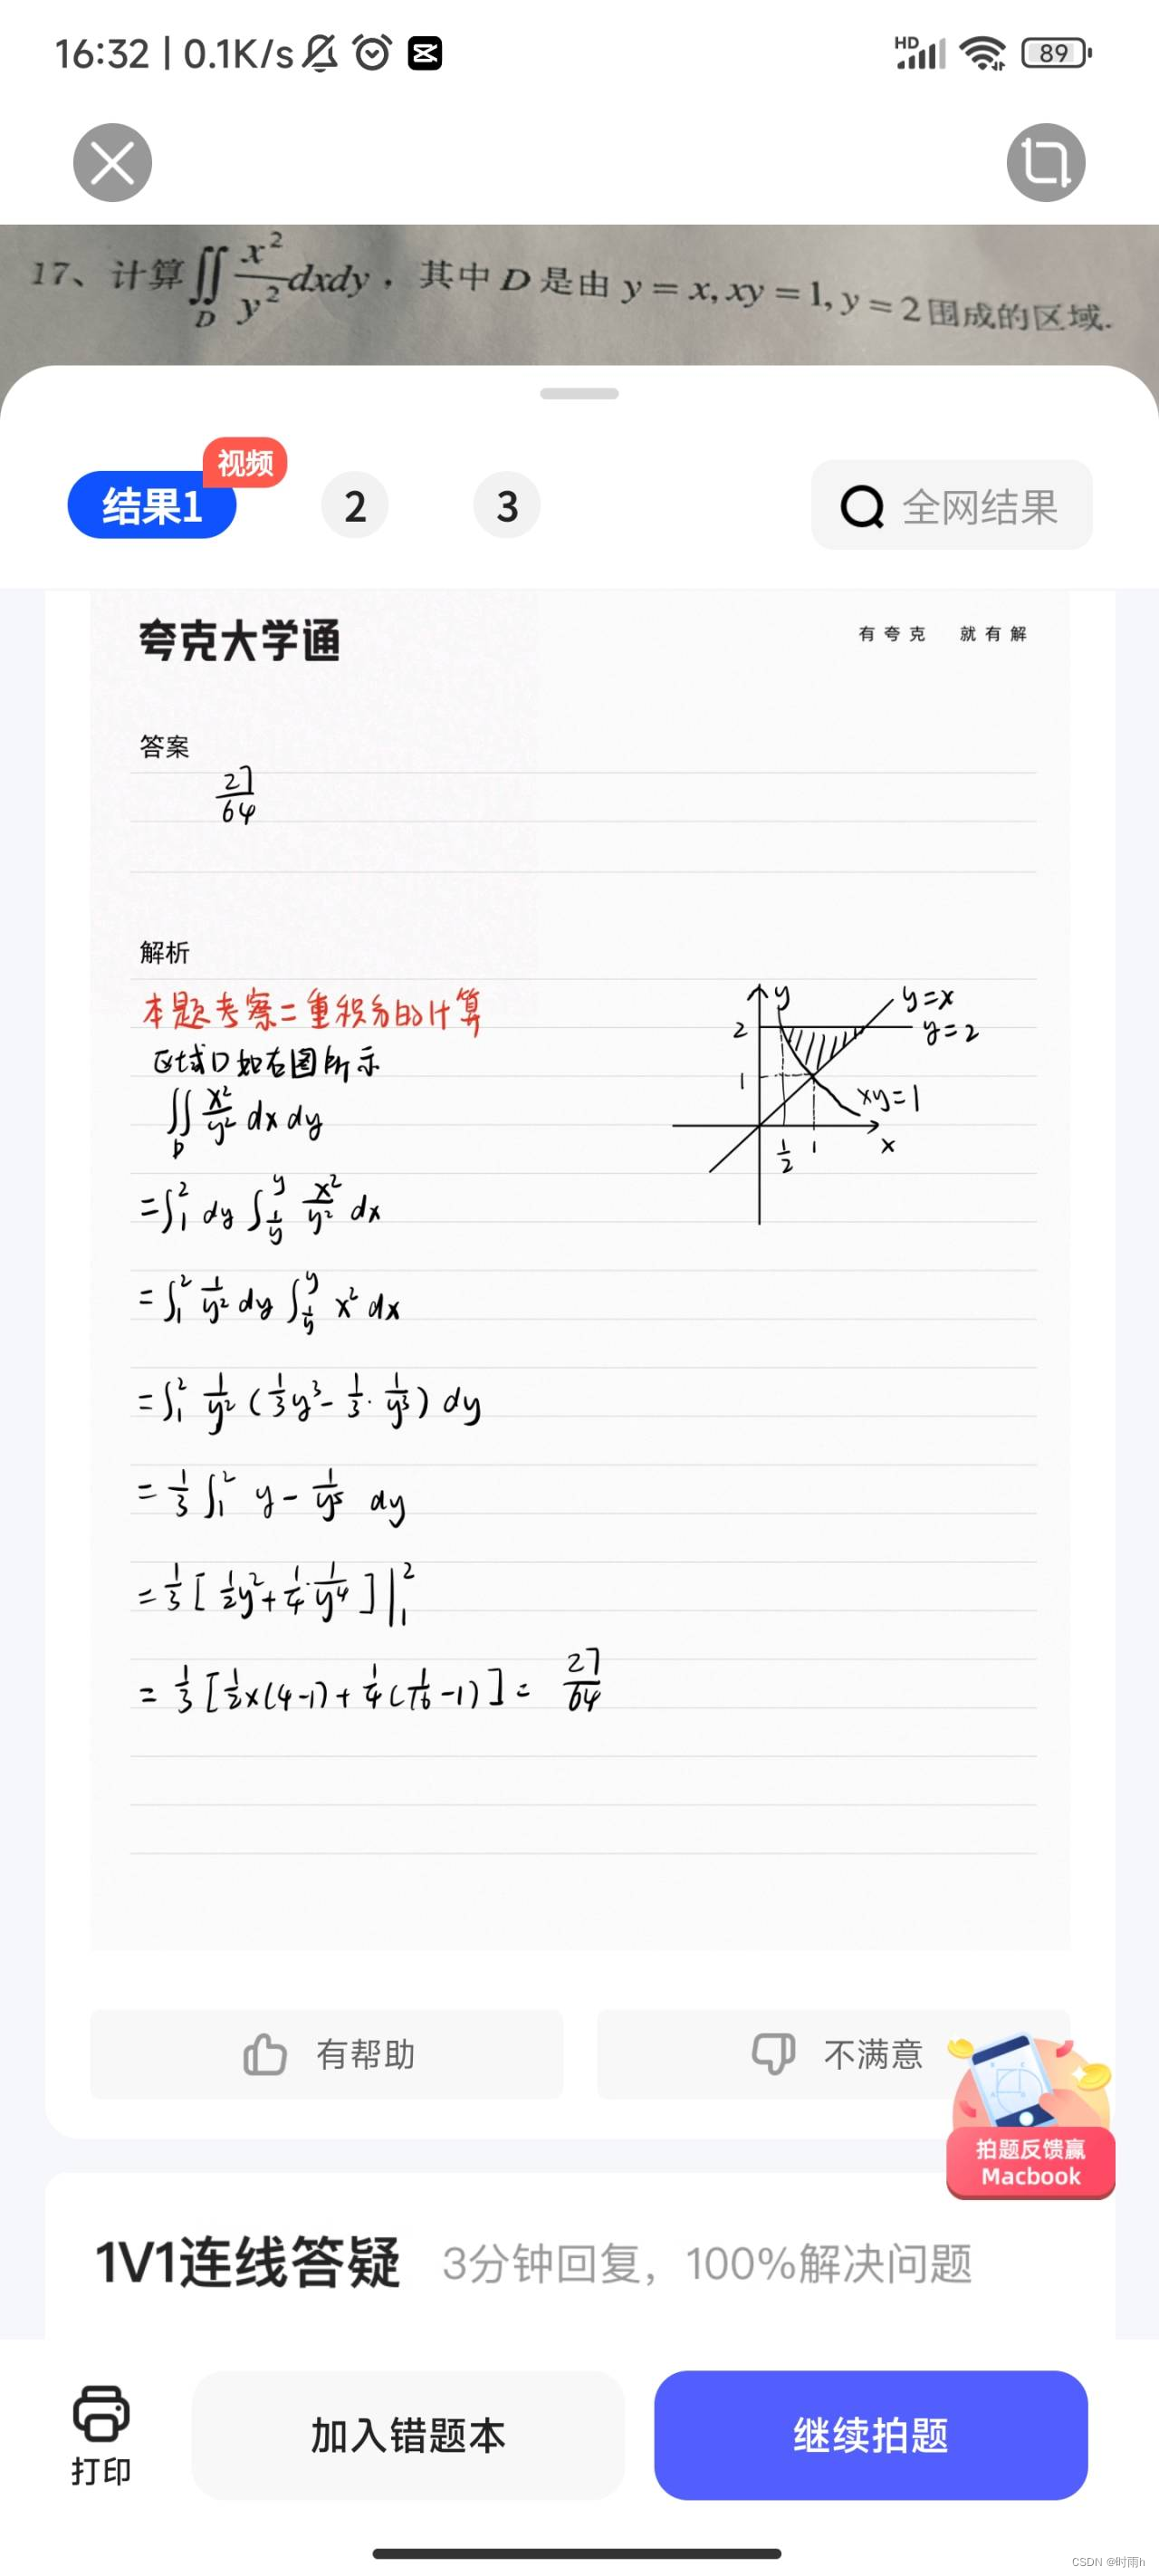 16:32 | 0.1K/s
HD 89
17、计算∬_D x²/y² dxdy，其中 D 是由 y = x, xy = 1, y = 2 围成的区域.
结果1
视频
2
3
全网结果
夸克大学通
有夸克 就有解
答案
27/64
解析
本题考察二重积分的计算
区域D如右图所示
∬_D x²/y² dx dy
=∫₁² dy ∫_{1/y}^{y} x²/y² dx
=∫₁² 1/y² dy ∫_{1/y}^{y} x² dx
=∫₁² 1/y² (1/3 y³ - 1/3 · 1/y³) dy
=1/3 ∫₁² y - 1/y⁵ dy
=1/3 [1/2 y² + 1/4 · 1/y⁴]|₁²
=1/3 [1/2×(4-1) + 1/4 (1/16 -1)] = 27/64
y
y=x
2
y=2
1
xy=1
1/2
1
x
有帮助
不满意
拍题反馈赢
Macbook
1V1连线答疑
3分钟回复，100%解决问题
打印
加入错题本
继续拍题
CSDN @时雨h